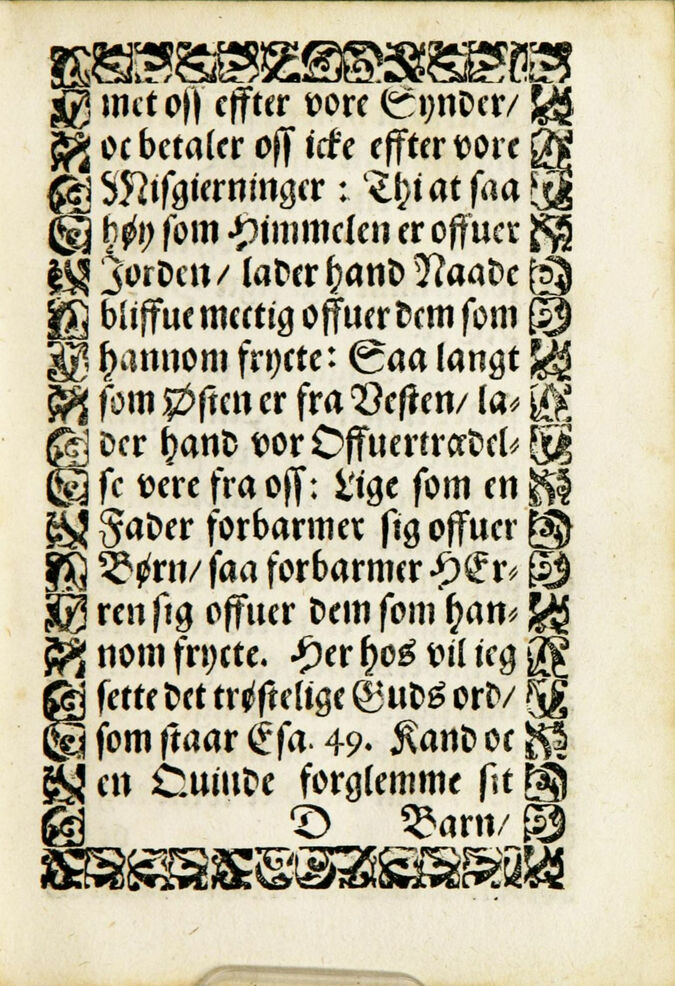 met oss effter vore Synder/
oc betaler oss icke effter vore
Misgierninger : Thi at saa
høy som Himmelen er offuer
Jorden/ lader hand Naade
bliffue mectig offuer dem som
hannom frycte: Saa langt
som Østen er fra Vesten/ la-
der hand vor Offuertrædel-
se vere fra oss: Lige som en
Fader forbarmer sig offuer
Børn/ saa forbarmer HEr-
ren sig offuer dem som han-
nom frycte. Her hos vil ieg
sette det trøstelige Guds ord/
som staar Esa. 49. Kand oc
en Quinde forglemme sit
D Barn/